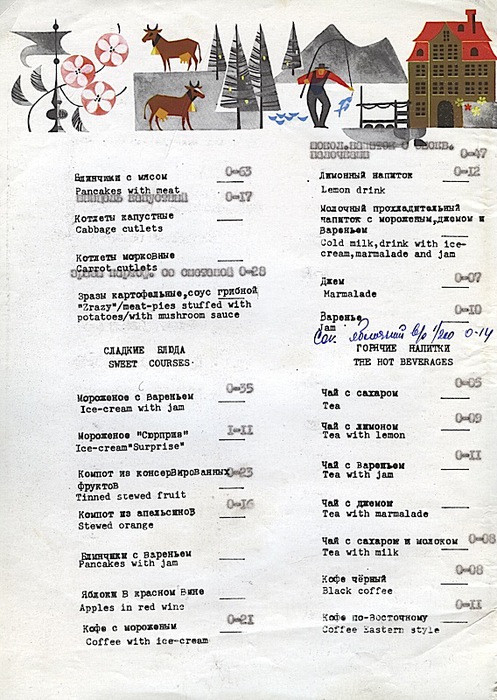 Блинчики с мясом 0-63
Pancakes with meat
капустный 0-17
Котлеты капустные
Cabbage cutlets
Котлеты морковные
Carrot cutlets
со сметаной 0-28
Зразы картофельные,соус грибной
"Zrazy"/meat-pies stuffed with
potatoes/with mushroom sauce
СЛАДКИЕ БЛЮДА
SWEET COURSES
Мороженое с вареньем 0-35
Ice-cream with jam
Мороженое "Сюрприз" 1-11
Ice-cream"Surprise"
Компот из консервированных 0-23
фруктов
Tinned stewed fruit
Компот из апельсинов 0-16
Stewed orange
Блинчики с вареньем
Pancakes with jam
Яблоки в красном вине
Apples in red wine
Кофе с мороженым 0-21
Coffee with ice-cream
0-47
Лимонный напиток 0-12
Lemon drink
Молочный прохладительный
напиток с мороженым,джемом и
вареньем
Cold milk,drink with ice-
cream,marmalade and jam
Джем 0-07
Marmalade
Варенье 0-10
Jam
Сок яблочный 0-14
ГОРЯЧИЕ НАПИТКИ
THE HOT BEVERAGES
Чай с сахаром 0-05
Tea
Чай с лимоном 0-09
Tea with lemon
Чай с вареньем 0-11
Tea with jam
Чай с джемом
Tea with marmalade
Чай с сахаром и молоком 0-08
Tea with milk
Кофе чёрный 0-08
Black coffee
Кофе по-Восточному 0-11
Coffee Eastern style